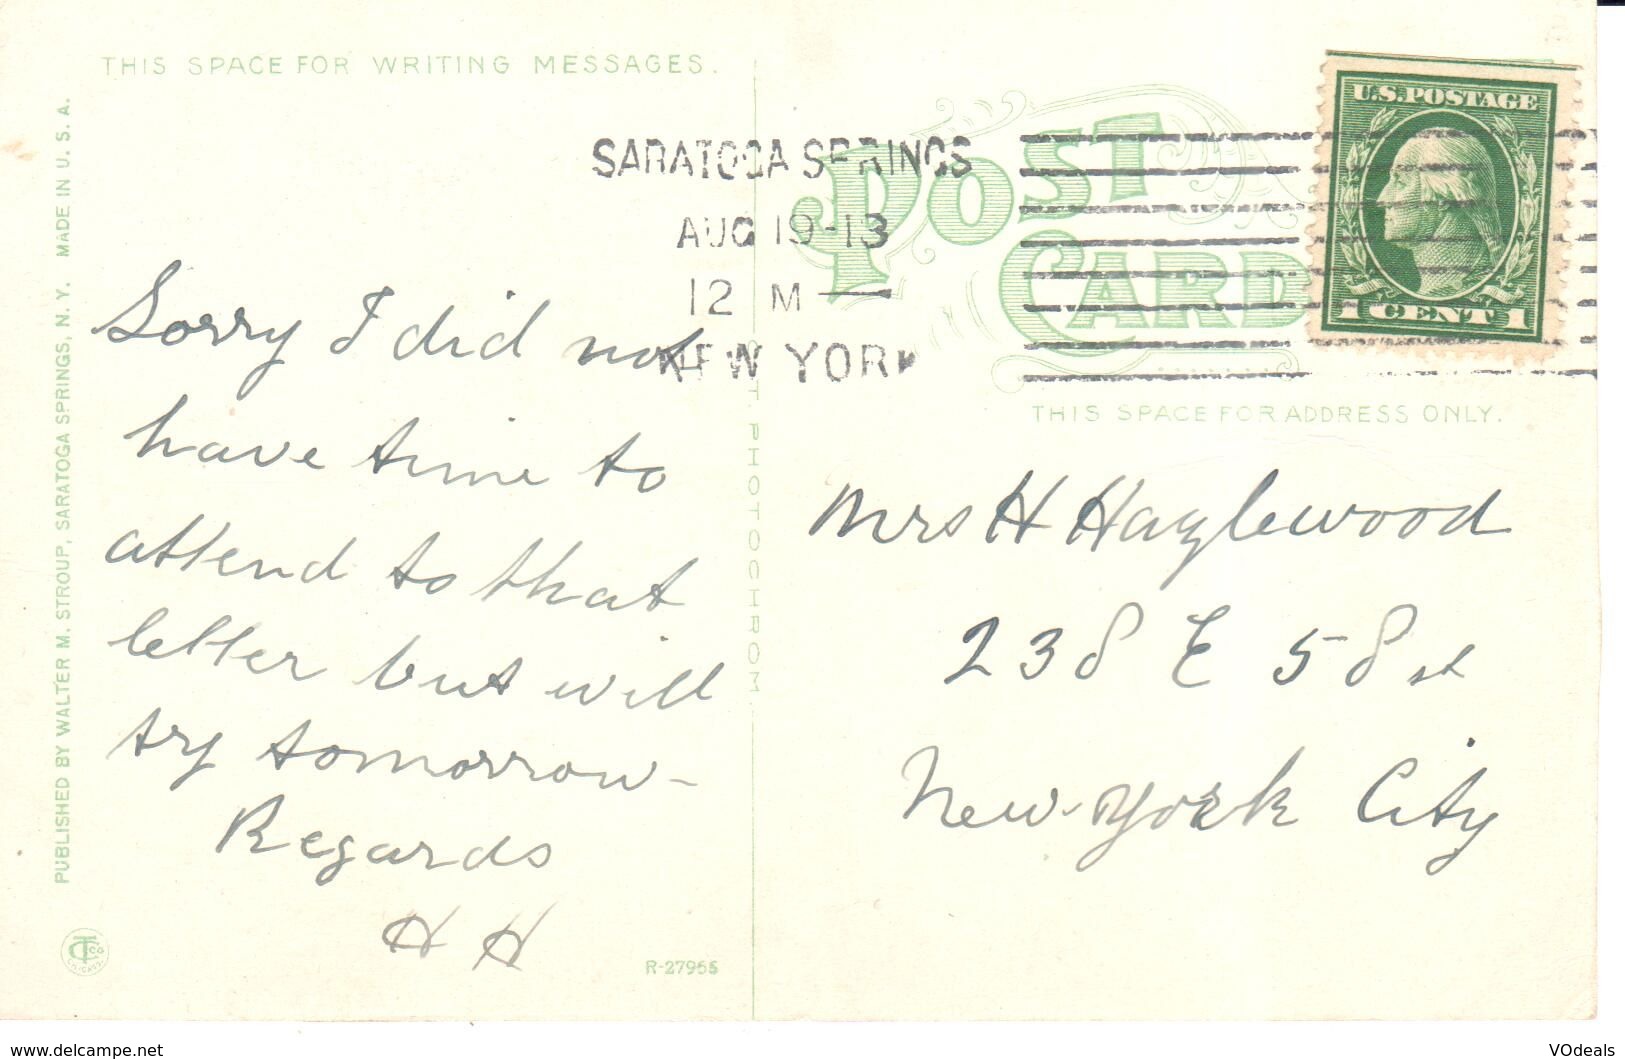 THIS SPACE FOR WRITING MESSAGES.
PUBLISHED BY WALTER M. STROUP, SARATOGA SPRINGS, N.Y. MADE IN U.S.A.
Sorry I did not
have time to
attend to that
letter but will
try tomorrow-
Regards
H H
R-27955
PHOTOCHROM
SARATOGA SPRINGS
AUG 19-13
12 M
NEW YORK
POST
CARD
U.S. POSTAGE
1 CENT 1
THIS SPACE FOR ADDRESS ONLY.
Mrs H Hazlewood
238 E 58 st
New-York City
www.delcampe.net
VOdeals